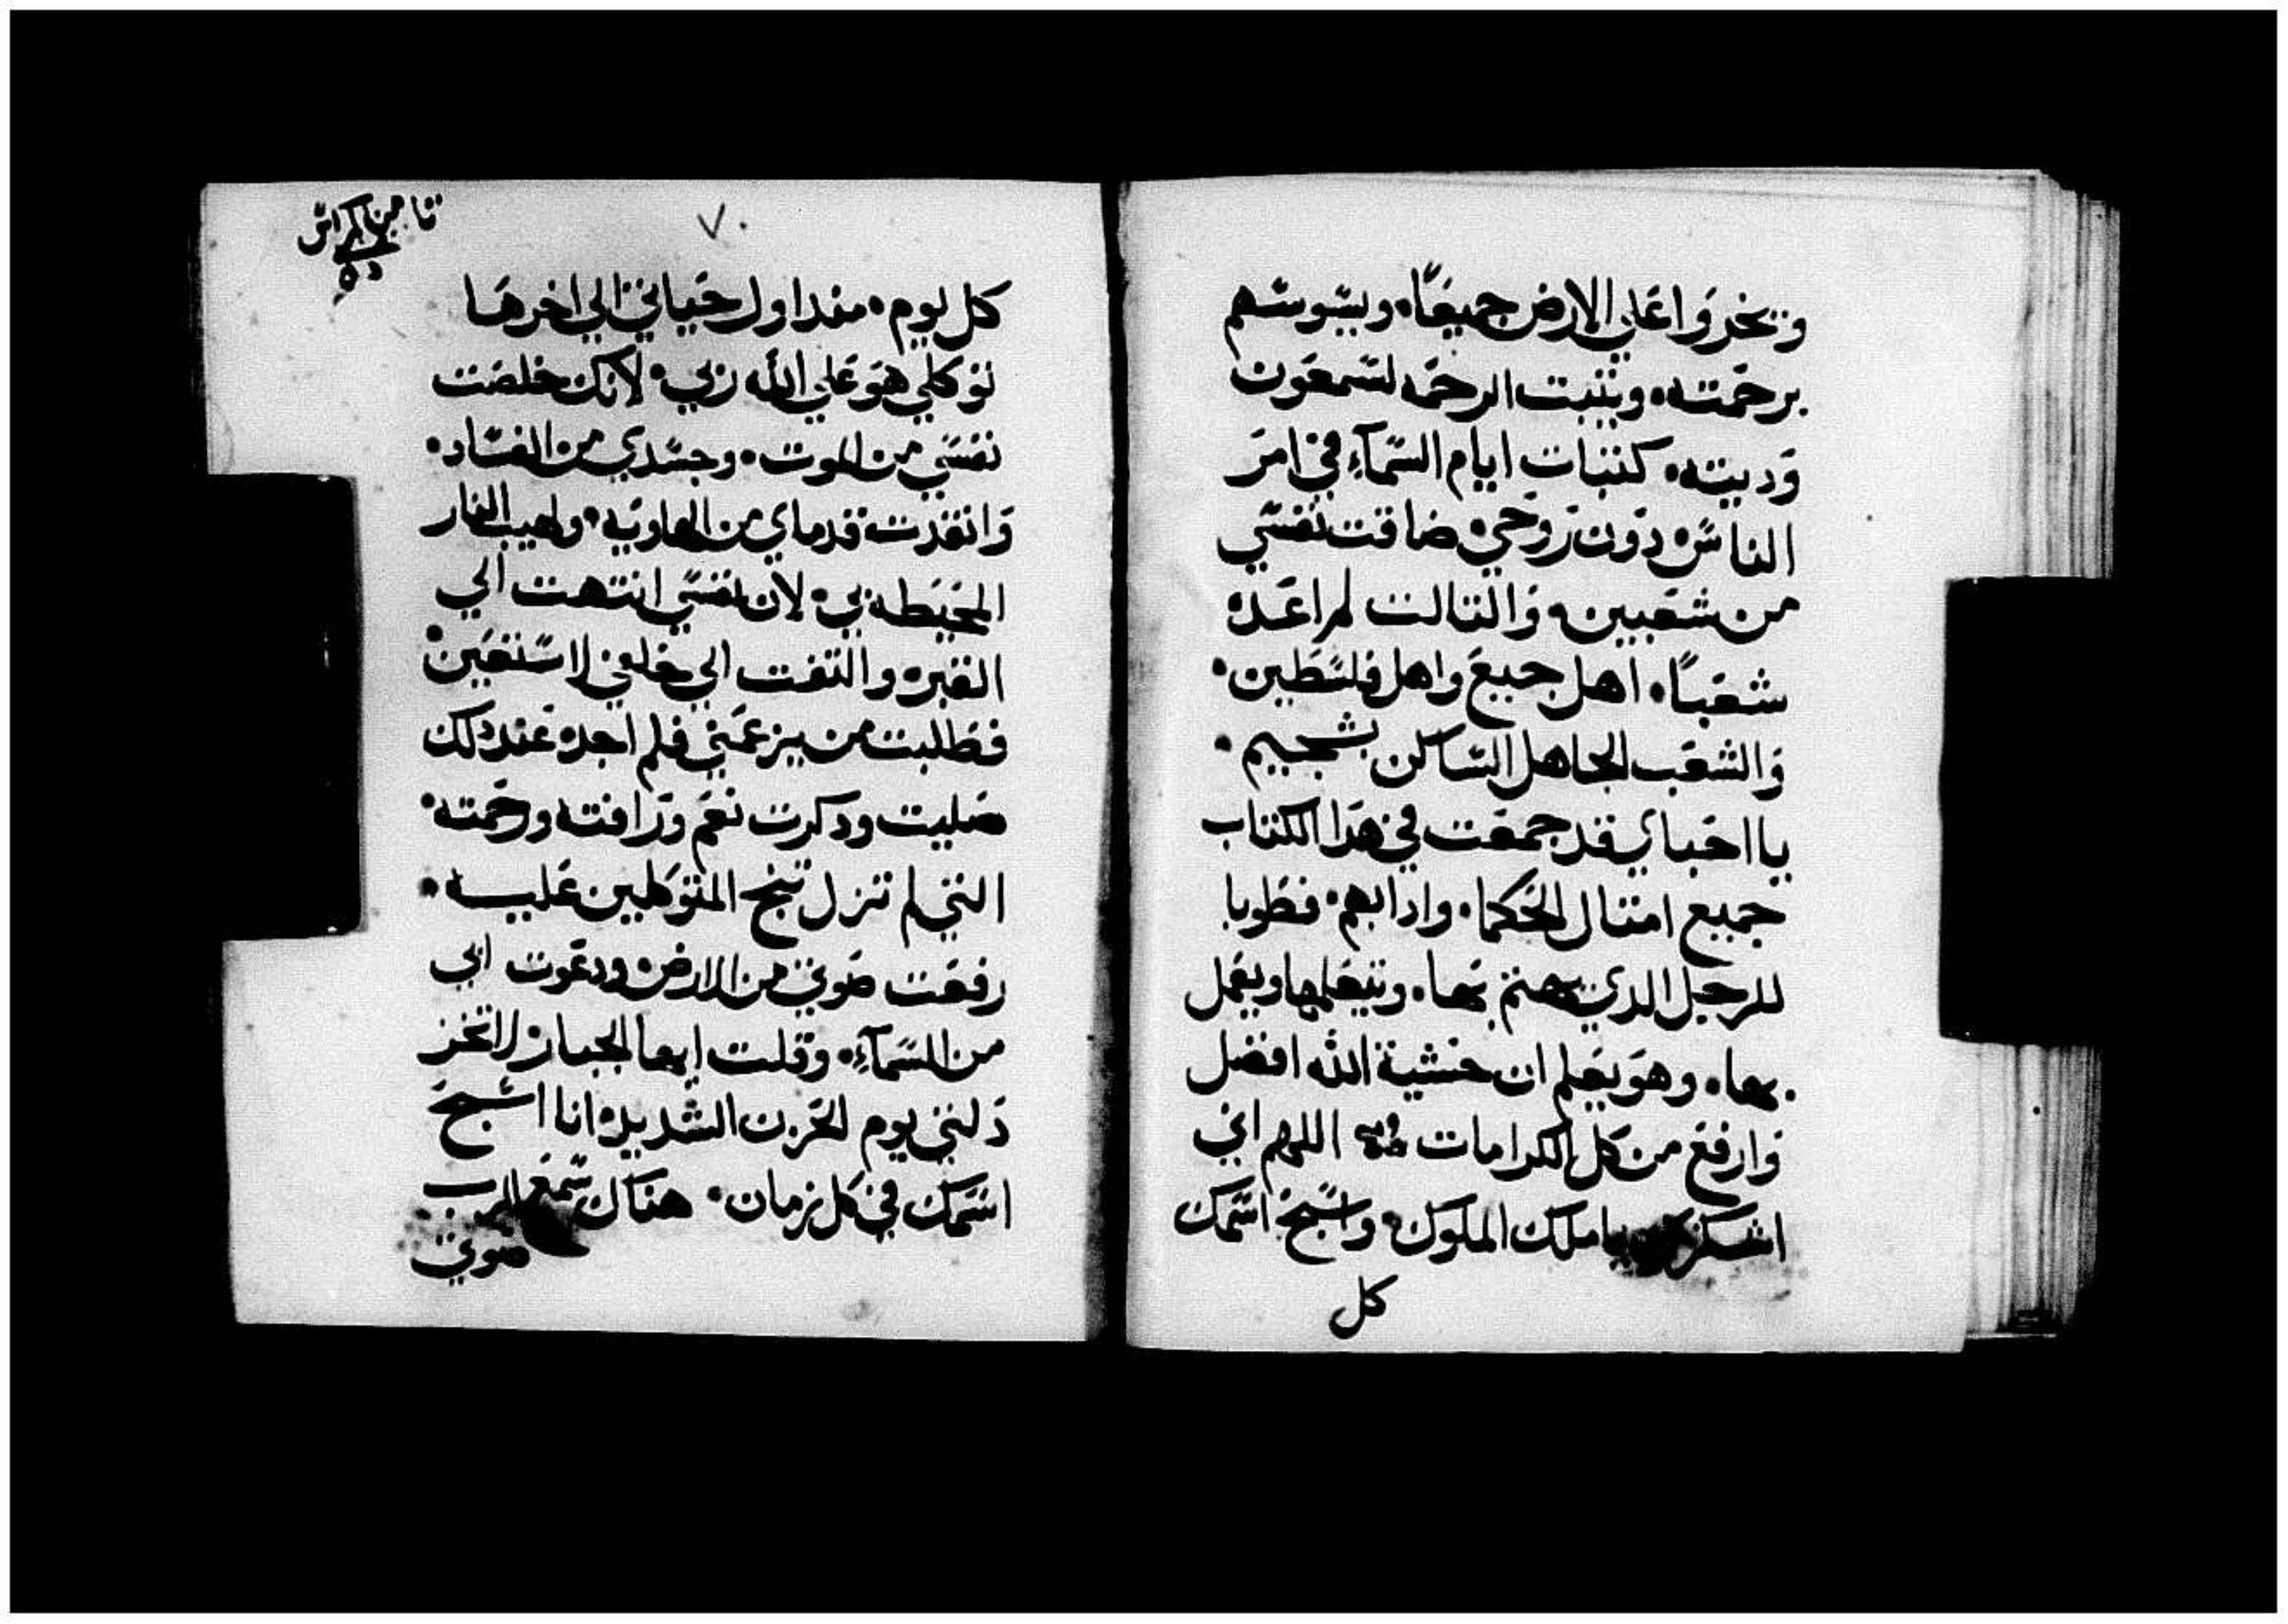 ويخروا علي الارض جميعًا. ويسوسهم
برحمته. ويثبت الرحمه لسمعون
وديته. كتبات ايام السمآء في امر
الناس دون روحي ضاقت نفسي
من شعبين والتالت لم اعده
شعبًا. اهل جبيع واهل فلسطين.
والشعب الجاهل الساكن بشجيم.
يا احباي قد جمعت في هدا الكتاب
جميع امتال الحكما. وادابهم. فطوبا
للرجل الدي يهتم بها. ويتعلمها ويعمل
بها. وهو يعلم ان خشية الله افضل
وارفع من كل الكرامات اللهم اني
اشكرك يا ملك الملوك. واسبح اسمك
كل
تامن كراس
٧٠
كل يوم. مند اول حياتي الي اخرها
توكلي هو علي الله ربي. لانك خلصت
نفسي من الموت. وجسدي من الفساد.
وانقدت قدماي من الهاويه. ولهيب النار
المحيطه بي. لان نفسي انتهت الي
القبر. والتفت الي خلفي لاستعين.
فطلبت من يزعمني فلم اجد. عند دلك
صليت ودكرت نعم ورافته ورحمته.
التي لم تزل تنج المتوكلين عليه.
رفعت صوتي من الارض ودعوت ابي
من السمآء. وقلت ايها الجبار لا تخز
دلتي يوم الحزن الشديد. انا اسبح
اسمك في كل زمان. هناك سمع الرب
صوتي